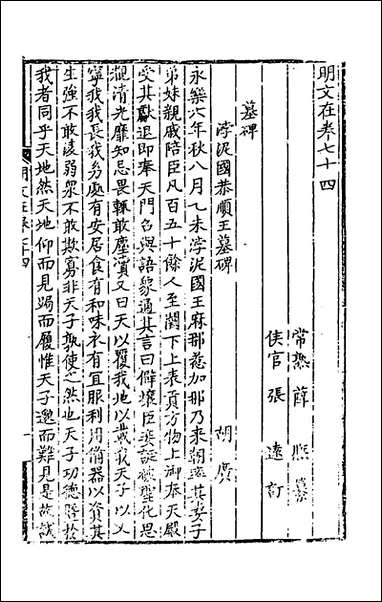 明文在卷七十四
常熟 薛 熙 纂
侯官 張 遠 訂
墓碑
浡泥國恭順王墓碑 胡 廣
永樂六年秋八月乙未浡泥國王麻那惹加那乃來朝率其妻子
弟妹親戚陪臣凡百五十餘人至闕下上表貢方物上御奉天殿
受其獻退即奉天門召與語象通其言曰僻壤臣妾誕被聲化思
覩清光靡知忌畏輒敢塵瀆又曰天以覆我地以載我天子以乂
寧我我長我幼處有安居食有和味衣有宜服利用備器以資其
生強不敢凌弱眾不敢欺寡非天子孰使之然也天子功德暨於
我者同乎天地然天地仰而見蹐而履惟天子邈而難見是故誠
明文在卷七十四